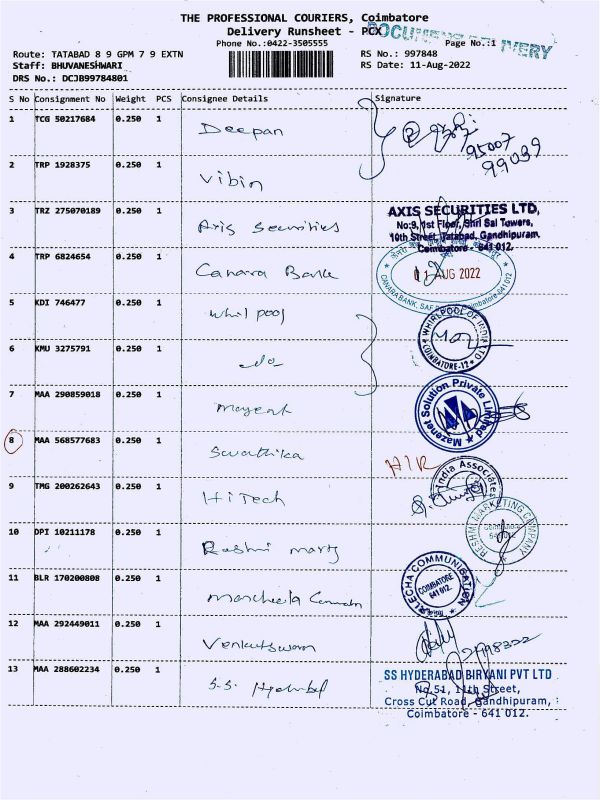 THE PROFESSIONAL COURIERS, Coimbatore
Delivery Runsheet - PCX
DOCUMENT DELIVERY
Phone No.:0422-3505555
Page No.:1
Route: TATABAD 8 9 GPM 7 9 EXTN
RS No.: 997848
Staff: BHUVANESHWARI
RS Date: 11-Aug-2022
DRS No.: DCJB99784801
S No Consignment No Weight PCS Consignee Details Signature
1 TCG 50217684 0.250 1 Deepan
95007
99039
2 TRP 1928375 0.250 1 Vibin
3 TRZ 275070189 0.250 1 Axis Securities
AXIS SECURITIES LTD,
No:9, 1st Floor, Shri Sai Towers,
10th Street, Tatabad, Gandhipuram,
Coimbatore - 641 012.
4 TRP 6824654 0.250 1 Canara Bank
11 AUG 2022
CANARA BANK, Coimbatore-641 012
5 KDI 746477 0.250 1 Whirlpool
WHIRLPOOL OF INDIA LTD
COIMBATORE-12
6 KMU 3275791 0.250 1 do
7 MAA 290859018 0.250 1
Mazenet Solution Private Limited
8 MAA 568577683 0.250 1 Swathika
9 TMG 200262643 0.250 1 HiTech
India Associates
10 DPI 10211178 0.250 1
RESHMI MARKETING COMPANY
11 BLR 170200808 0.250 1
COMMUNICATION
COIMBATORE
641 012.
12 MAA 292449011 0.250 1
13 MAA 288602234 0.250 1 S.S. Hyderabad
SS HYDERABAD BIRYANI PVT LTD
No.51, 11th Street,
Cross Cut Road, Gandhipuram,
Coimbatore - 641 012.